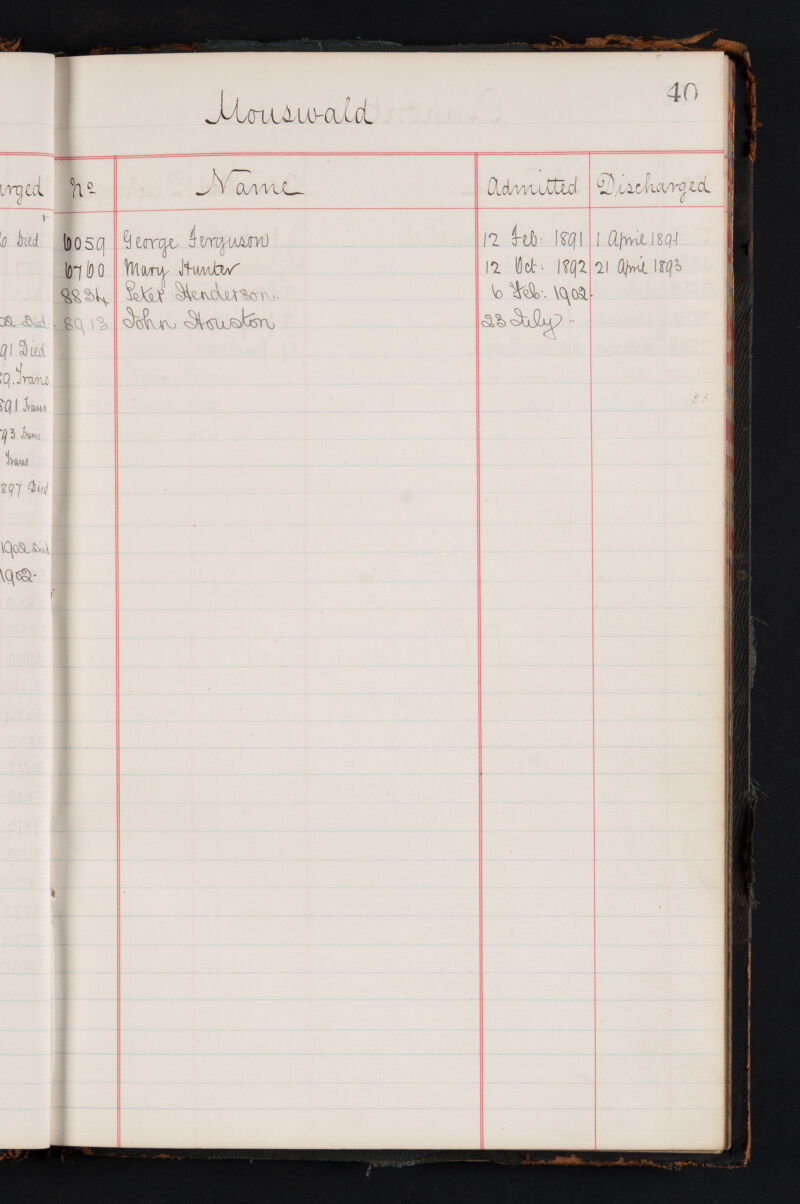 40
Mouswald
No Name Admitted Discharged
6059 George Ferguson 12 Feb: 1891 1 April 1891
6760 Mary Hunter 12 Oct: 1892 21 April 1893
8834 Peter Henderson. 6 Feb: 1902.
8913 John Houston 23 July "
rged
Died
Died
91 Died
Trans
91 Trans
93 Trans
Trans
897 Died
1902 Died
1902-